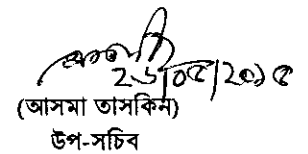 ২৬/০৫/২০১৫
(আসমা তাসকিন)
উপ-সচিব